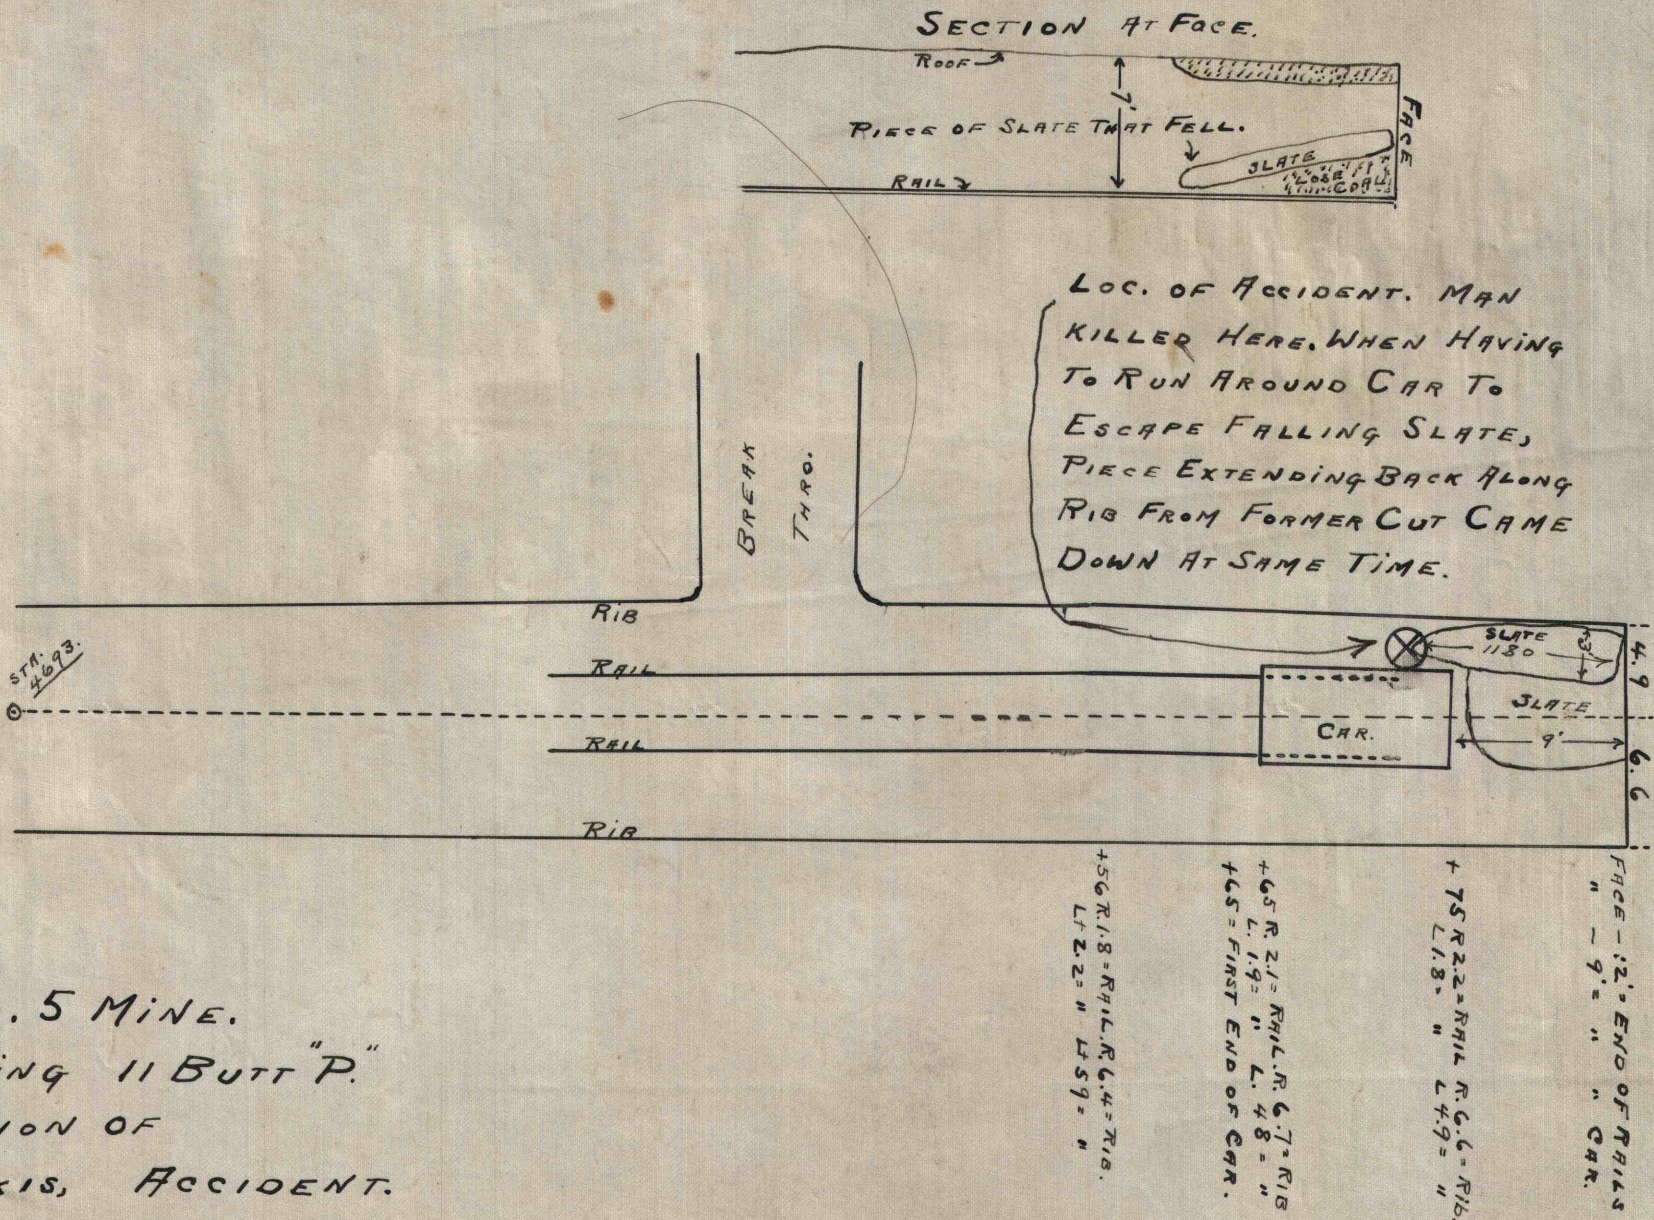 SECTION AT FACE.
ROOF
7'
PIECE OF SLATE THAT FELL.
FACE
SLATE
LOSE
COAL
RAIL
LOC. OF ACCIDENT. MAN
KILLED HERE. WHEN HAVING
TO RUN AROUND CAR TO
ESCAPE FALLING SLATE,
PIECE EXTENDING BACK ALONG
RIB FROM FORMER CUT CAME
DOWN AT SAME TIME.
BREAK
THRO.
RIB
STA.
4693.
RAIL
RAIL
RIB
CAR.
SLATE
1180
3'
SLATE
9'
4.9
6.6
+56 R.1.8 = RAIL. R. 6.4 = RIB.
Lt 2.2 = " Lt 59 = "
+65 R. 2.1 = RAIL. R. 6.7 = RIB
L. 1.9 = " L. 48 = "
+65 = FIRST END OF CAR.
+ 75 R 2.2 = RAIL R. 6.6 = RIB.
L 1.8 = " L 4.9 = "
FACE - 12' = END OF RAILS
" - 9' = " " CAR.
. 5 MINE.
ING 11 BUTT "P."
ION OF
KIS, ACCIDENT.